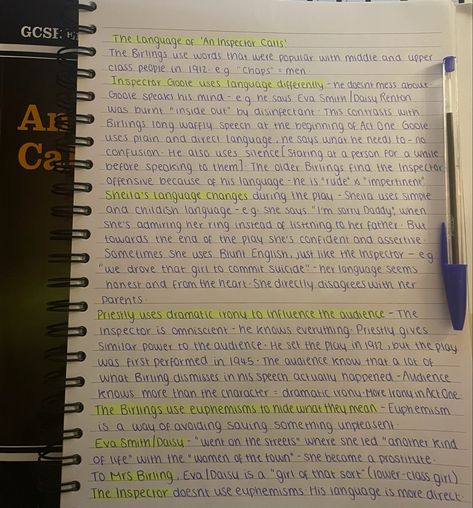 GCSE E
An
Ca
The Language of 'An Inspector Calls'
The Birlings use words that were popular with middle and upper
class people in 1912. e.g "Chaps" = men.
Inspector Goole uses language differently - he doesnt mess about
Goole speaks his mind - e.g he says Eva Smith/Daisy Renton
was burnt "inside out" by disinfectant. This contrasts with
Birlings long waffly speech at the beginning of Act One. Goole
uses plain and direct language, he says what he needs to - no
confusion. He also uses silence [staring at a person for a while
before speaking to them]. The older Birlings find the Inspector
offensive because of his language - he is "rude" & "impertinent"
Sheila's language changes during the play - Sheila uses simple
and childish language - e.g she says "I'm sorry Daddy", when
she's admiring her ring instead of listening to her father. But
towards the end of the play she's confident and assertive.
Sometimes she uses Blunt English, just like the Inspector - e.g
"we drove that girl to commit suicide" - her language seems
honest and from the heart. She directly disagrees with her
parents.
Priestly uses dramatic irony to influence the audience - The
Inspector is omniscient - he knows everything. Priestly gives
similar power to the audience. He set the play in 1912, but the play
was first performed in 1945. The audience know that a lot of
what Birling dismisses in his speech actually happened - Audience
knows more than the character = dramatic irony. More Irony in Act One.
The Birlings use euphemisms to hide what they mean - Euphemism
is a way of avoiding saying something unpleasent.
Eva Smith/Daisy - "went on the streets" where she led "another kind
of life" with the "women of the town" - She became a prostitute.
To Mrs Birling, Eva/Daisy is a "girl of that sort" (lower-class girl)
The Inspector doesnt use euphemisms. His language is more direct.